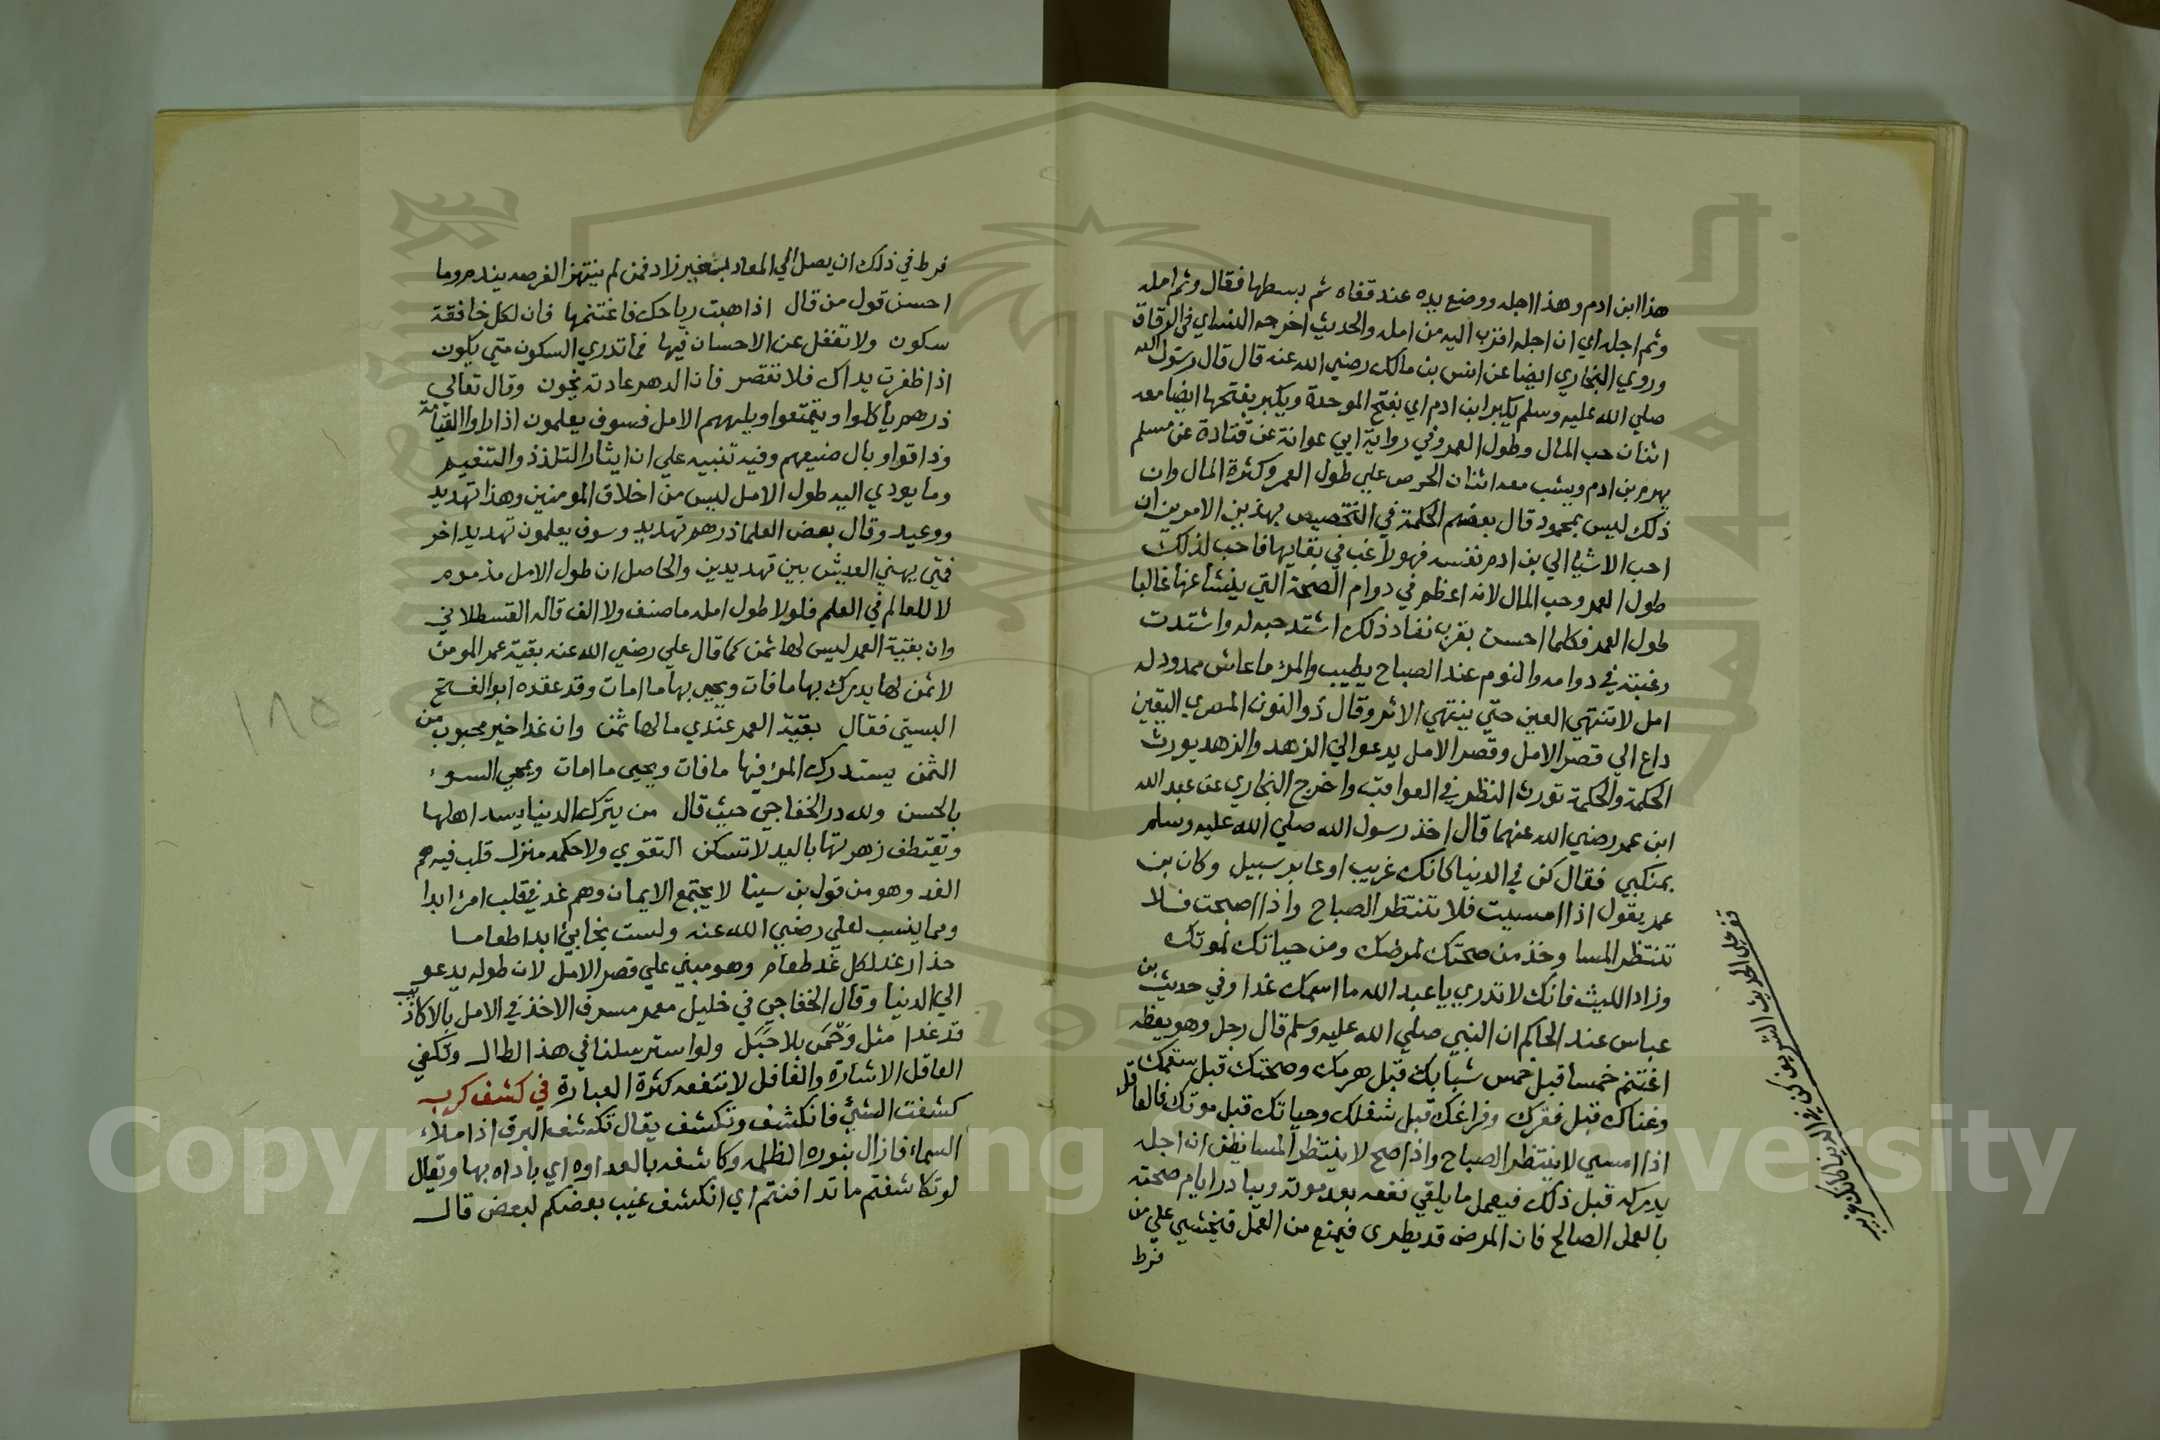 هذا ابن ادم وهذا اجله ووضع يده عند قفاه ثم بسطها فقال وثم امله
وثم اجله اي ان اجله اقرب اليه من امله والحديث اخرجه النساي في الرقاق
وروي البخاري ايضا عن انس بن مالك رضي الله عنه قال قال رسول الله
صلي الله عليه وسلم يكبر ابن ادم اي بفتح الموحدة ويكبر بفتحها ايضا معه
اثنان حب المال وطول العمر وفي رواية ابي عوانة عن قتادة عن مسلم
يهرم بن ادم ويشب معه اثنان الحرص علي طول العمر وكثرة المال وان
ذلك ليس بمحمود قال بعضهم الحكمة في التخصيص بهذين الامرين ان
احب الاشيا الي بن ادم نفسه فهو راغب في بقايها فاحب لذلك
طول العمر وحب المال لانه اعظم في دوام الصحة التي ينشا عنها غالبا
طول العمر فكلما احسن بقرب نفاد ذلك اشتد حبه له واشتدت
رغبته في دوامه والنوم عند الصباح يطيب والمرء ما عاش ممدود له
امل لا تنتهي العين حتي ينتهي الاثر وقال ذو النون المصري اليقين
داع الي قصر الامل وقصر الامل يدعو الي الزهد والزهد يورث
الحكمة والحكمة تورث النظر في العواقب واخرج البخاري عن عبد الله
ابن عمر رضي الله عنهما قال اخذ رسول الله صلي الله عليه وسلم
بمنكبي فقال كن في الدنيا كانك غريب او عابر سبيل وكان بن
عمر يقول اذا امسيت فلا تنتظر الصباح واذا اصبحت فلا
تنتظر المسا وخذ من صحتك لمرضك ومن حياتك لموتك
وزاد الليث فانك لا تدري يا عبد الله ما اسمك غدا وفي حديث بن
عباس عند الحاكم ان النبي صلي الله عليه وسلم قال رجل وهو يعظه
اغتنم خمسا قبل خمس شبابك قبل هرمك وصحتك قبل سقمك
وغناك قبل فقرك وفراغك قبل شغلك وحياتك قبل موتك فالعاقل
اذا امسي لا ينتظر الصباح واذا اصبح لا ينتظر المسا يظن ان اجله
يدركه قبل ذلك فيعمل ما يلقي نفعه بعد موته ويبادر ايام صحته
بالعمل الصالح فان المرض قد يطرى فيمنع من العمل فيخشي علي من
فرط
قف علي الحديث الشريف كن في الدنيا كانك غريب
فرط في ذلك ان يصل الي المعاد بغير زاد فمن لم ينتهز الفرصه يندم وما
احسن قول من قال اذا هبت رياحك فاغتنمها فان لكل خافقة
سكون ولا تغفل عن الاحسان فيها فما تدري السكون متي يكون
اذا ظفرت يداك فلا تقصر فان الدهر عادته يخون وقال تعالي
ذرهم ياكلوا ويتمتعوا ويلههم الامل فسوف يعلمون اذا راوا القيامة
وذاقوا وبال صنيعهم وفيه تنبيه علي ان ايثار التلذذ والتنعيم
وما يودي اليه طول الامل ليس من اخلاق المومنين وهذا تهديد
ووعيد وقال بعض العلما ذرهم تهديد وسوف يعلمون تهديد اخر
فمتي يهني العيش بين تهديدين والحاصل ان طول الامل مذموم
لا للعالم في العلم فلولا طول امله ما صنف ولا الف قاله القسطلاني
وان بقية العمر ليس لها ثمن كما قال علي رضي الله عنه بقية عمر المومن
لا ثمن لها يدرك بها ما فات ويحيي بها ما امات وقد عقده ابو الفتح
البستي فقال بقية العمر عندي ما لها ثمن وان غدا خير محبوب من
الثمن يستدرك المرء فيها ما فات ويحيي ما امات ويمحي السوء
بالحسن ولله در الخفاجي حيث قال من يترك الدنيا يسد اهلها
ويقتطف زهرتها باليد لا تسكن التقوي ولا حكمه منزل قلب فيه هم
الغد وهو من قول بن سينا لا يجتمع الايمان وهم غد في قلب امرء ابدا
ومما ينسب لعلي رضي الله عنه ولست بخابئ ابدا طعاما
حذار غد لكل غد طعام وهو مبني علي قصر الامل لان طوله يدعو
الي الدنيا وقال الخفاجي في خليل معمر مسرف الاخذ في الامل بالاكاذيب
قد غدا مثل وحمى بلا حبل ولو استرسلنا في هذا لطال وتكفي
العاقل الاشارة والغافل لا تنفعه كثرة العبارة في كشف كرب
كشفت الشئ فانكشف وتكشف يقال تكشف البرق اذا ملاء
السماء فازال بنوره الظلمه وكاشفه بالعداوه اي باداه بها ويقال
لو تكاشفتم ما تدافنتم اي انكشف غيب بعضكم لبعض قال
١٨٥
Copyright © King Saud University
1957
جامعة الملك سعود